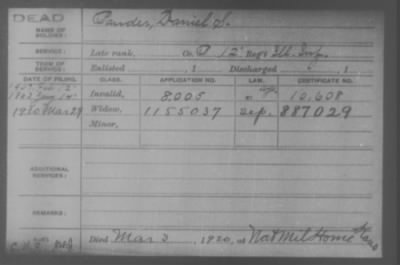 DEAD
NAME OF SOLDIER:
Daniel S.
SERVICE:
Late rank, Co. 12 Reg't Ill. Inf.
TERM OF SERVICE:
Enlisted , 1 Discharged , 1
DATE OF FILING. CLASS. APPLICATION NO. LAW. CERTIFICATE NO.
Invalid, 8.005 10,608
1920 Mar 29 Widow, 1155037 887029
Minor,
ADDITIONAL SERVICES:
REMARKS:
Died Mar 3, 1920, at Nat Mil Home